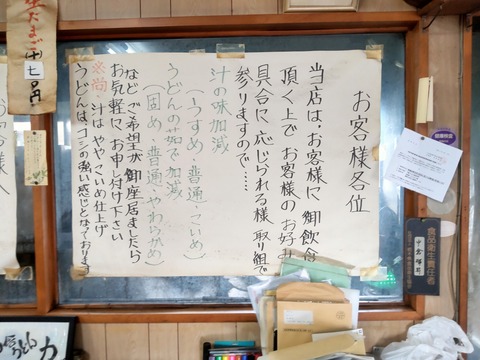 お客様各位
当店は、お客様に御飲食
頂く上でお客様のお好み
具合に応じられる様取り組で
参りますので……
汁の味加減
(うすめ・普通・こいめ)
うどんの茹で加減
(固め・普通・やわらかめ)
などご希望が御座居ましたら
お気軽に、お申し付け下さい
※尚 汁はややこいめ仕上げ
うどんは、コシの強い感じとなっております
食品衛生責任者